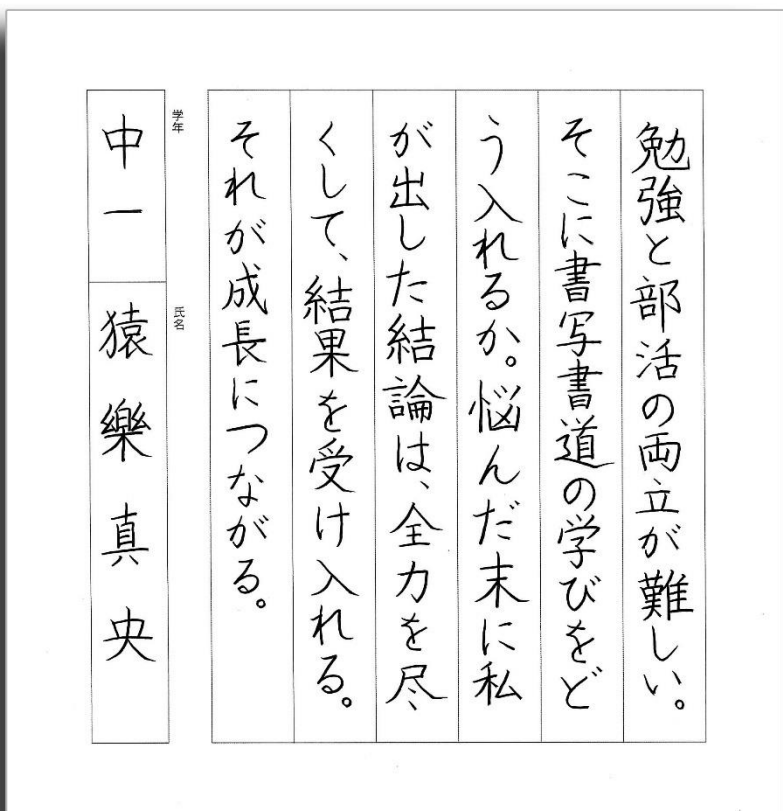 勉強と部活の両立が難しい。
そこに書写書道の学びをど
う入れるか。悩んだ末に私
が出した結論は、全力を尽
くして、結果を受け入れる。
それが成長につながる。
学年
中一
氏名
猿樂真央